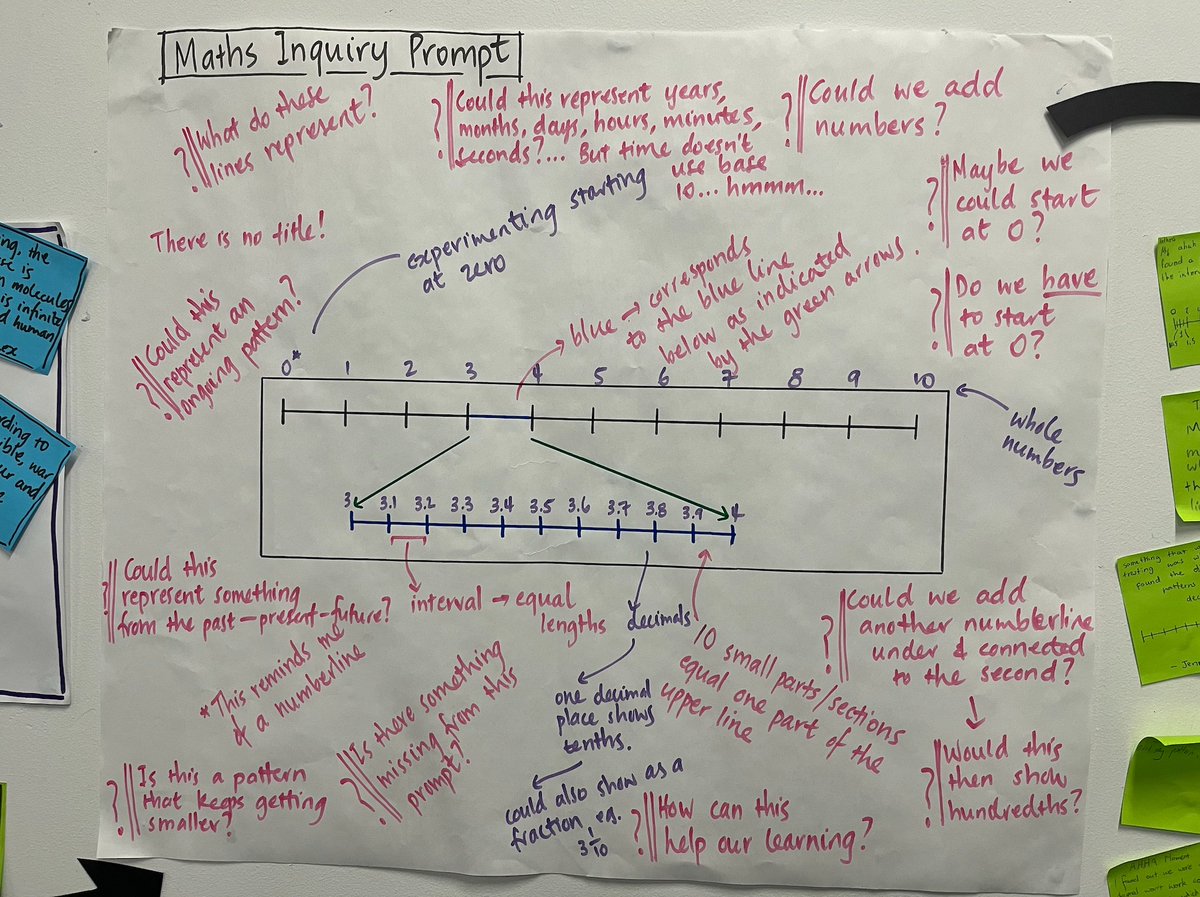 Maths Inquiry Prompt
? What do these
lines represent?
? Could this represent years,
months, days, hours, minutes,
seconds?... But time doesn't
use base
10... hmmm...
? Could we add
numbers?
? Maybe we
could start
at 0?
There is no title!
experimenting starting
at zero
? Could this
represent an
ongoing pattern?
blue → corresponds
to the blue line
below as indicated
by the green arrows.
? Do we have
to start
at 0?
0* 1 2 3 4 5 6 7 8 9 10
whole
numbers
3 3.1 3.2 3.3 3.4 3.5 3.6 3.7 3.8 3.9 4
? Could this
represent something
from the past-present-future?
interval → equal
lengths
decimals
10 small parts/sections
equal one part of the
upper line
? Could we add
another numberline
under & connected
to the second?
* This reminds me
of a numberline
? Is there something
missing from this
prompt?
one decimal
place shows
tenths.
could also show as a
fraction, eg.
3 1/10
? Would this
then show
hundredths?
? Is this a pattern
that keeps getting
smaller?
? How can this
help our learning?
the
is
molecules
is infinite
human
ex
to
war
and
My ahah
found a
the inter
something that
found the
patterns
AHHA Moment
I found out we were